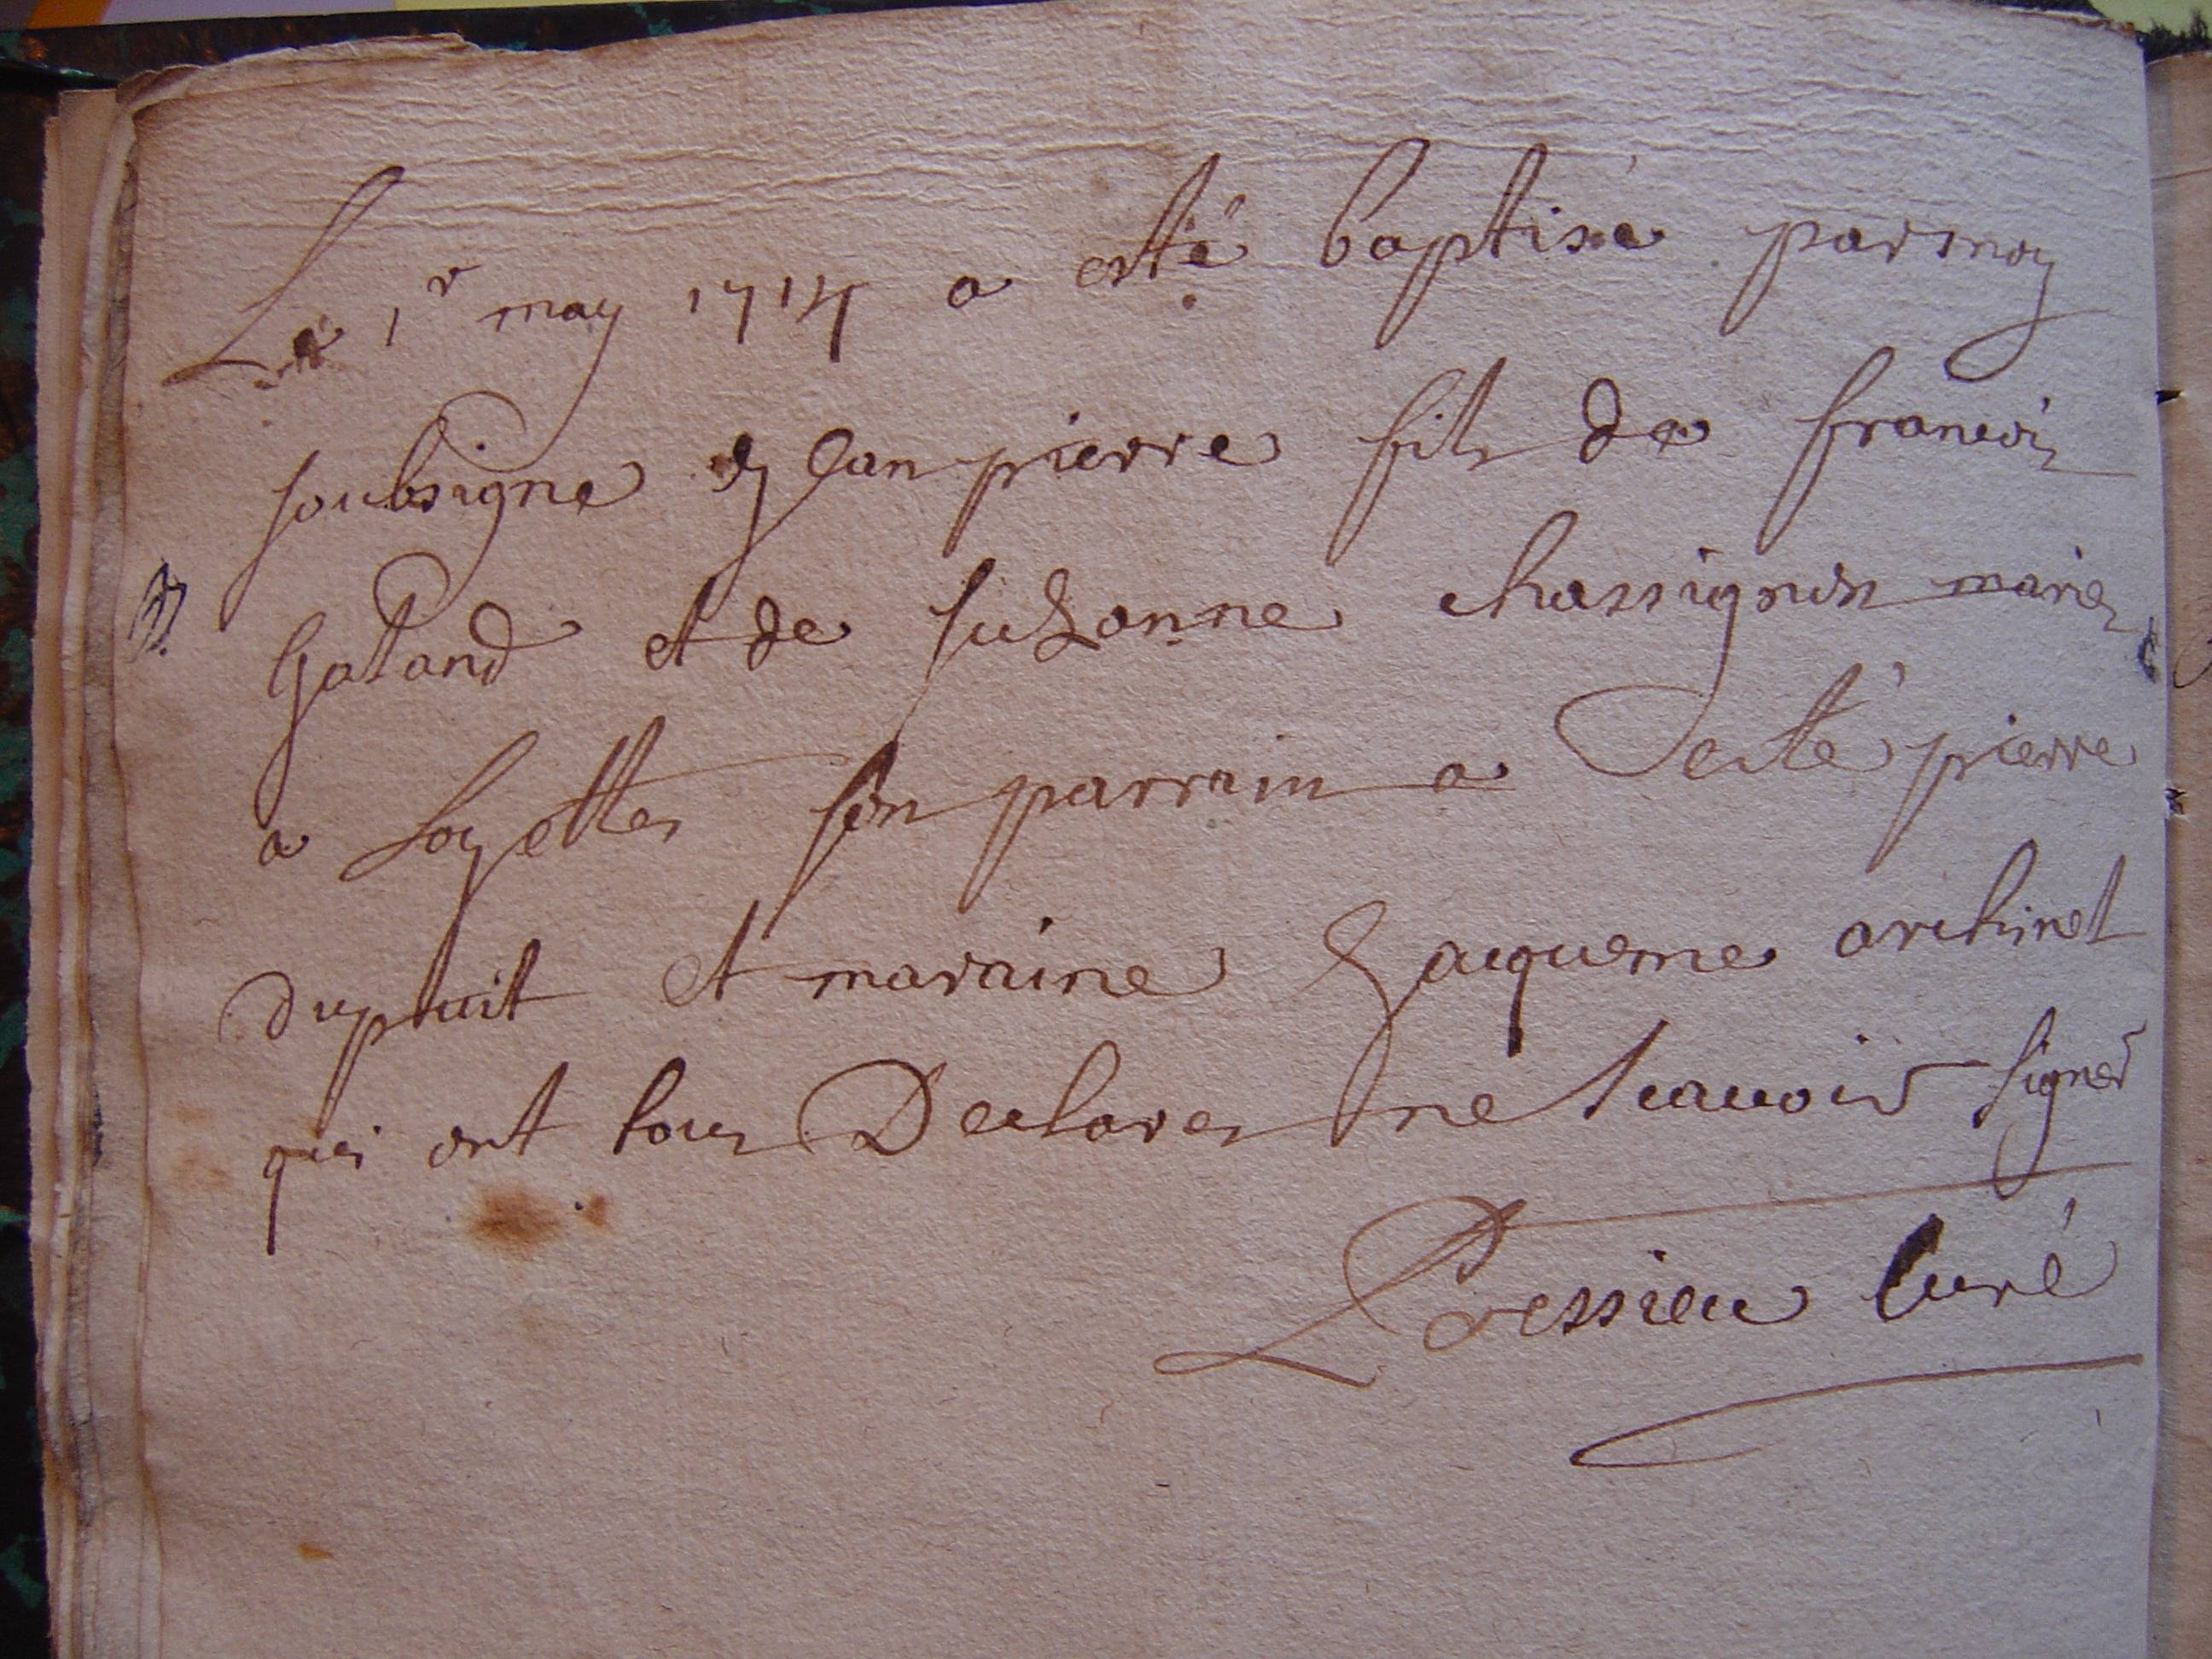 Le 1r may 1714 a esté baptisé par moy
soubsigne Jean pierre fils de francois
Galand et de suzanne chassignon mariez
a Loyettes son parrain a esté pierre
dupuit et maraine Jacqueme archinet
qui ont tous Declarez ne scauoir signer
Dressieu Curé